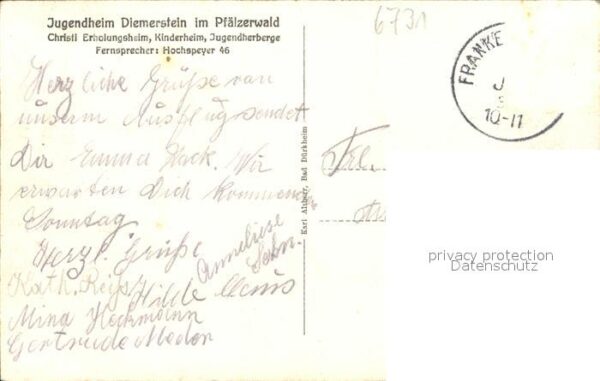 Jugendheim Diemerstein im Pfälzerwald
Christl Erholungsheim, Kinderheim, Jugendherberge
Fernsprecher: Hochspeyer 46
6731
FRANKE
J
10-11
Herzliche Grüße von
unserm Ausflug sendet
Dir Emma Hack. Wir
erwarten Dich kommenden
Sonntag
Herzl. Grüße
Anneliese
Kath.
Hilde
Mina Heckmann
Gertrude
Karl Bad Dürkheim
Frl.
privacy protection
Datenschutz